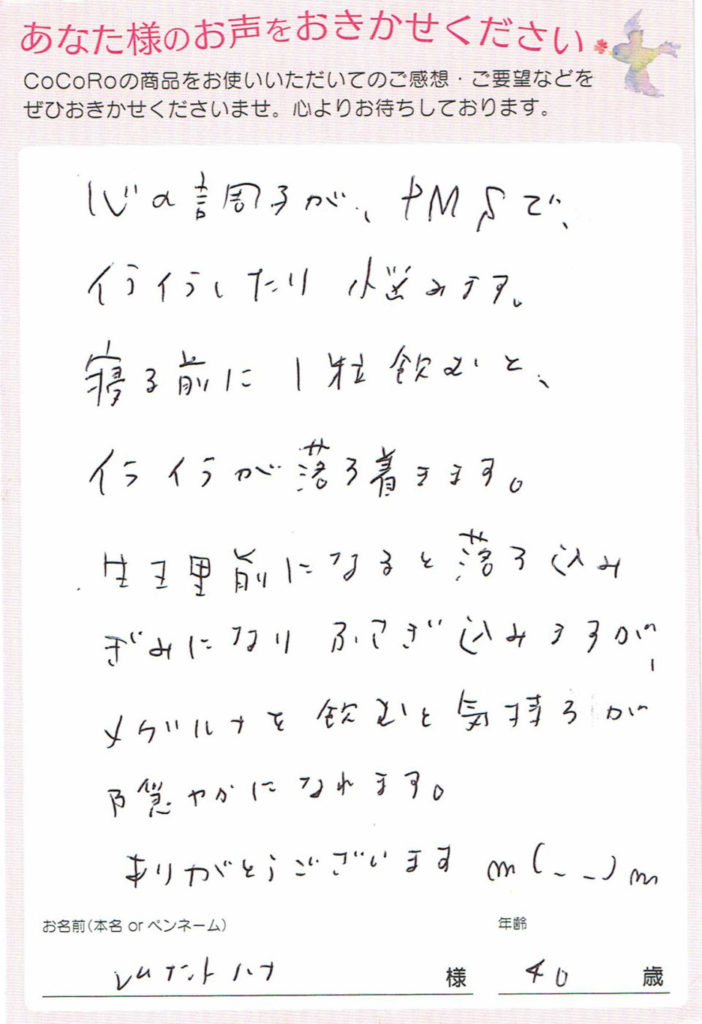 あなた様のお声をおきかせください
CoCoRoの商品をお使いいただいてのご感想・ご要望などを
ぜひおきかせくださいませ。心よりお待ちしております。
心の調子が、PMSで、
イライラしたり 悩みます。
寝る前に1粒飲むと、
イライラが落ち着きます。
生理前になると落ち込み
ぎみになり ふさぎ込みますが、
メグルナを飲むと気持ちが
穏やかになれます。
ありがとうございます m(_ _)m
お名前(本名 or ペンネーム)
様
年齢
40 歳